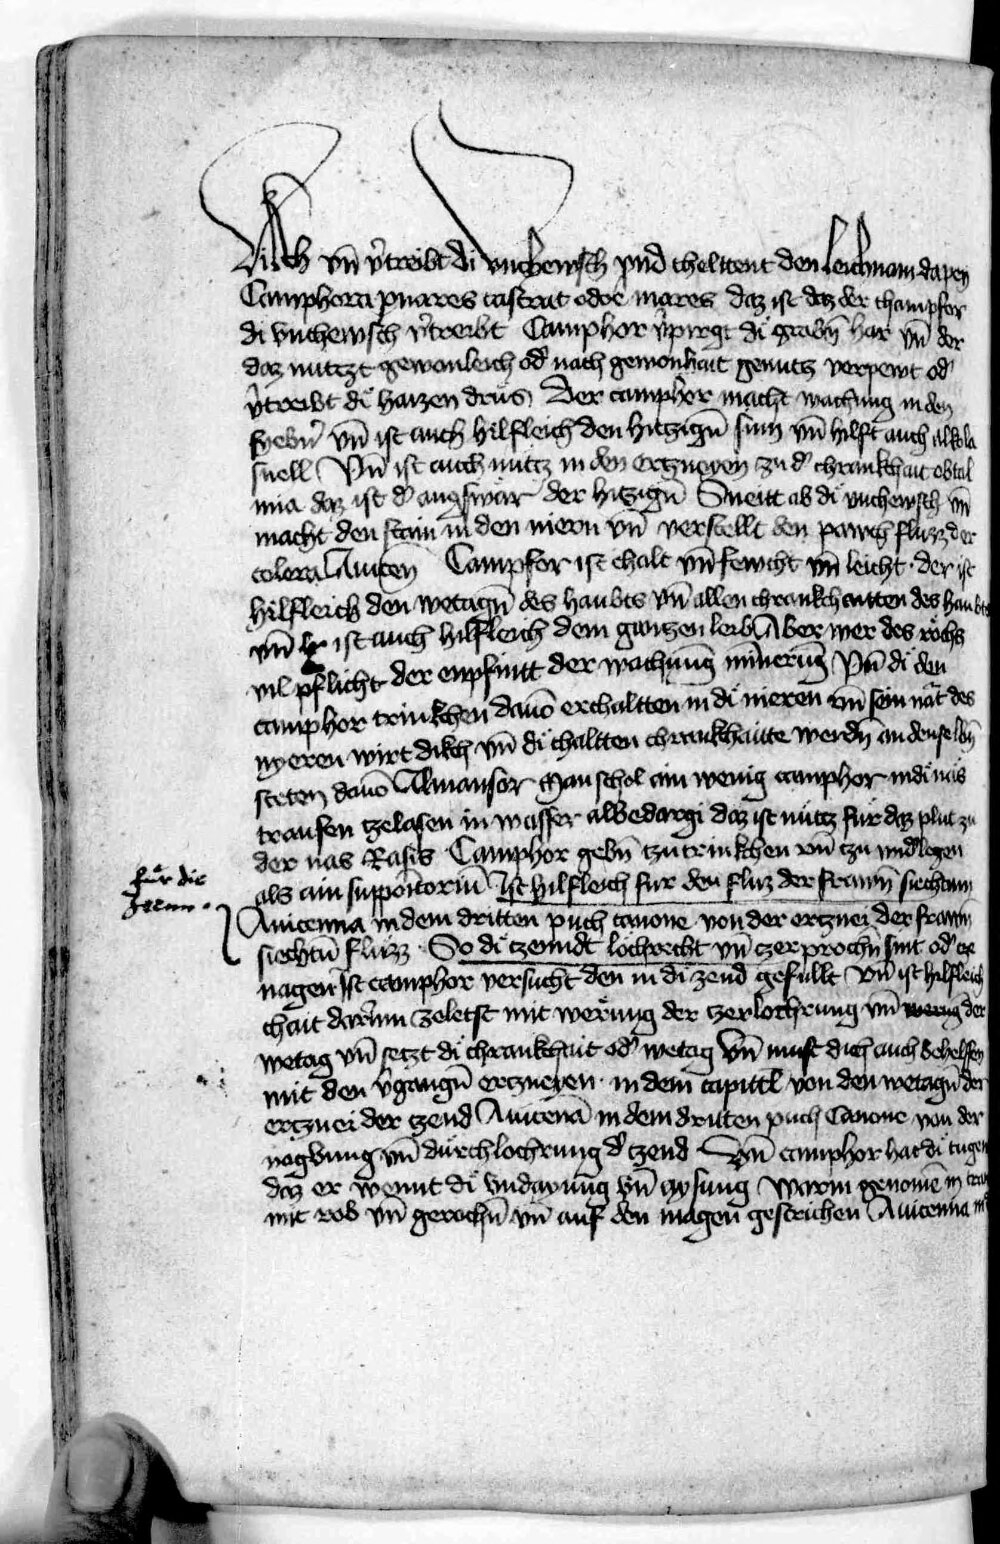 sich vn̄ v̓treibt di vnchewsch vnd cheltent den leichnam da pey
Camphora p nares castrat odore mares daz ist daz der champfer
di vnchewsch v̓treibt Camphor v̓pirgt di grabn̄ har vn̄ der
daz nutzt gewonleich od̓ nach gewonhait genutz verpewt od̓
v̓treibt di haizen drüs Der camphor macht wachung in den
fyebn̓ vn̄ ist auch hilfleich den hitzign̄ sinn vn̄ hilft auch alkola
snell Vn̄ ist auch nutz in den ertzneyen zu d̓ chrankchait obtal
mia daz ist d̓ augswär der hitzign̄ Sneitt ab di vnchewsch vn̄
macht den stain in den niern vn̄ verstellt den pawch fluzz der
colera Auicen Campfor ist chalt vn̄ fewcht vn̄ leicht der ist
hilfleich den wetagn̄ des haubts vn̄ allen chrankchaitten des haubts
vn̄ ist auch hilfleich dem ganzen leib Aber wer des röchs
vil pflicht der enpfintt der wachūng minerūg Vn̄ di den
camphor trinkchen dauō erchaltten in di nieren vn̄ sein nat des
nyeren wirt dikch vn̄ di chaltten chrankhaite werdn̄ an denselbn̄
steten dauō Almansor Man schol ain wenig camphor in di nas
traufen tzelasen in wasser albedargi daz ist nütz für daz plut zu
der nas Rasis Camphor gebn̄ tzu trinkchen vn̄ tzu vnd̓legen
als ain suppositoriū Ist hilfleich fur den fluz der frawn̄ siechtum
für die
zeenn
Auicenna in dem dritten puch canone von der ertznei der frawn̄
siechtū fluzz So di tzenndt löchrecht vn̄ tzerprochn̄ sint od̓ ge
nagen Ist camphor versucht den in di zend gefullt Vn̄ ist hilfleich
chait darūm zeletst mit werūng der tzerlochrung vn̄ werug der
wetag vn̄ setzt di chrankchait od̓ wetag Vn̄ must dich auch behelfen
mit den v̓gangn̄ ertzneyen in dem capittl von den wetagn̄ der
ertznei der tzend Auicenā in dem dritten puch Canone von der
nagbung vn̄ durchlochrung d̓ tzend Vn̄ camphor hat di tugent
daz er wennt di vndayūng vn̄ warm genomē in
mit rob vn̄ gerochn̄ vn̄ auf den magen gestrichen Auicenna in